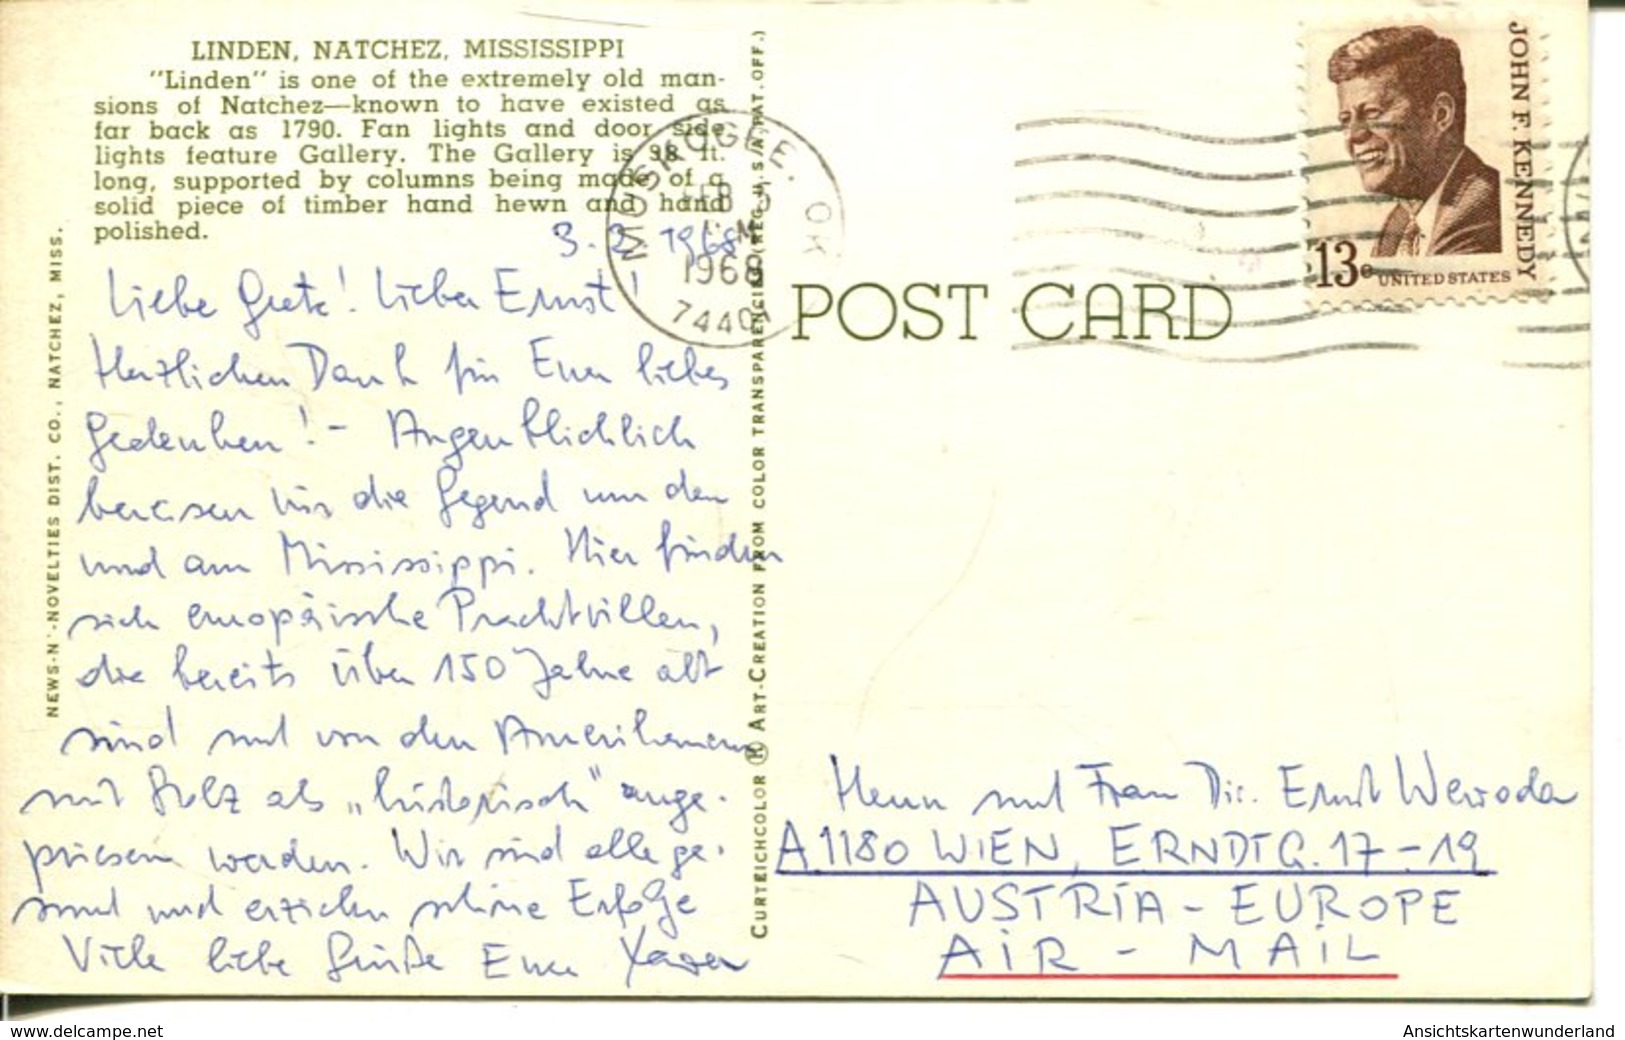 LINDEN, NATCHEZ, MISSISSIPPI
"Linden" is one of the extremely old man-
sions of Natchez—known to have existed as
far back as 1790. Fan lights and door side
lights feature Gallery. The Gallery is 98 ft.
long, supported by columns being made of a
solid piece of timber hand hewn and hand
polished.
NEWS-N'-NOVELTIES DIST. CO., NATCHEZ, MISS.
3.2.1968
Liebe Grete! Lieber Ernst!
Herzlichen Dank für Euer liebes
Gedenken! - Augenblicklich
bereisen wir die Gegend um den
und am Mississippi. Hier finden
sich europäische Prachtvillen,
die bereits über 150 Jahre alt
sind und von den Amerikanern
mit Stolz als „historisch" ange-
priesen werden. Wir sind alle ge-
sund und erzielen schöne Erfolge
Viele liebe Grüße Euer Xaver
CURTEICHCOLOR ® ART-CREATION FROM COLOR TRANSPARENCIES (REG. U.S.A. PAT. OFF.)
MUSKOGEE, OK
FEB 5
PM
1968
74401
POST CARD
JOHN F. KENNEDY
13c UNITED STATES
Herrn und Frau Dir. Ernst Wewoda
A 1180 WIEN, ERNDTG. 17-19
AUSTRIA - EUROPE
AIR - MAIL
www.delcampe.net
Ansichtskartenwunderland